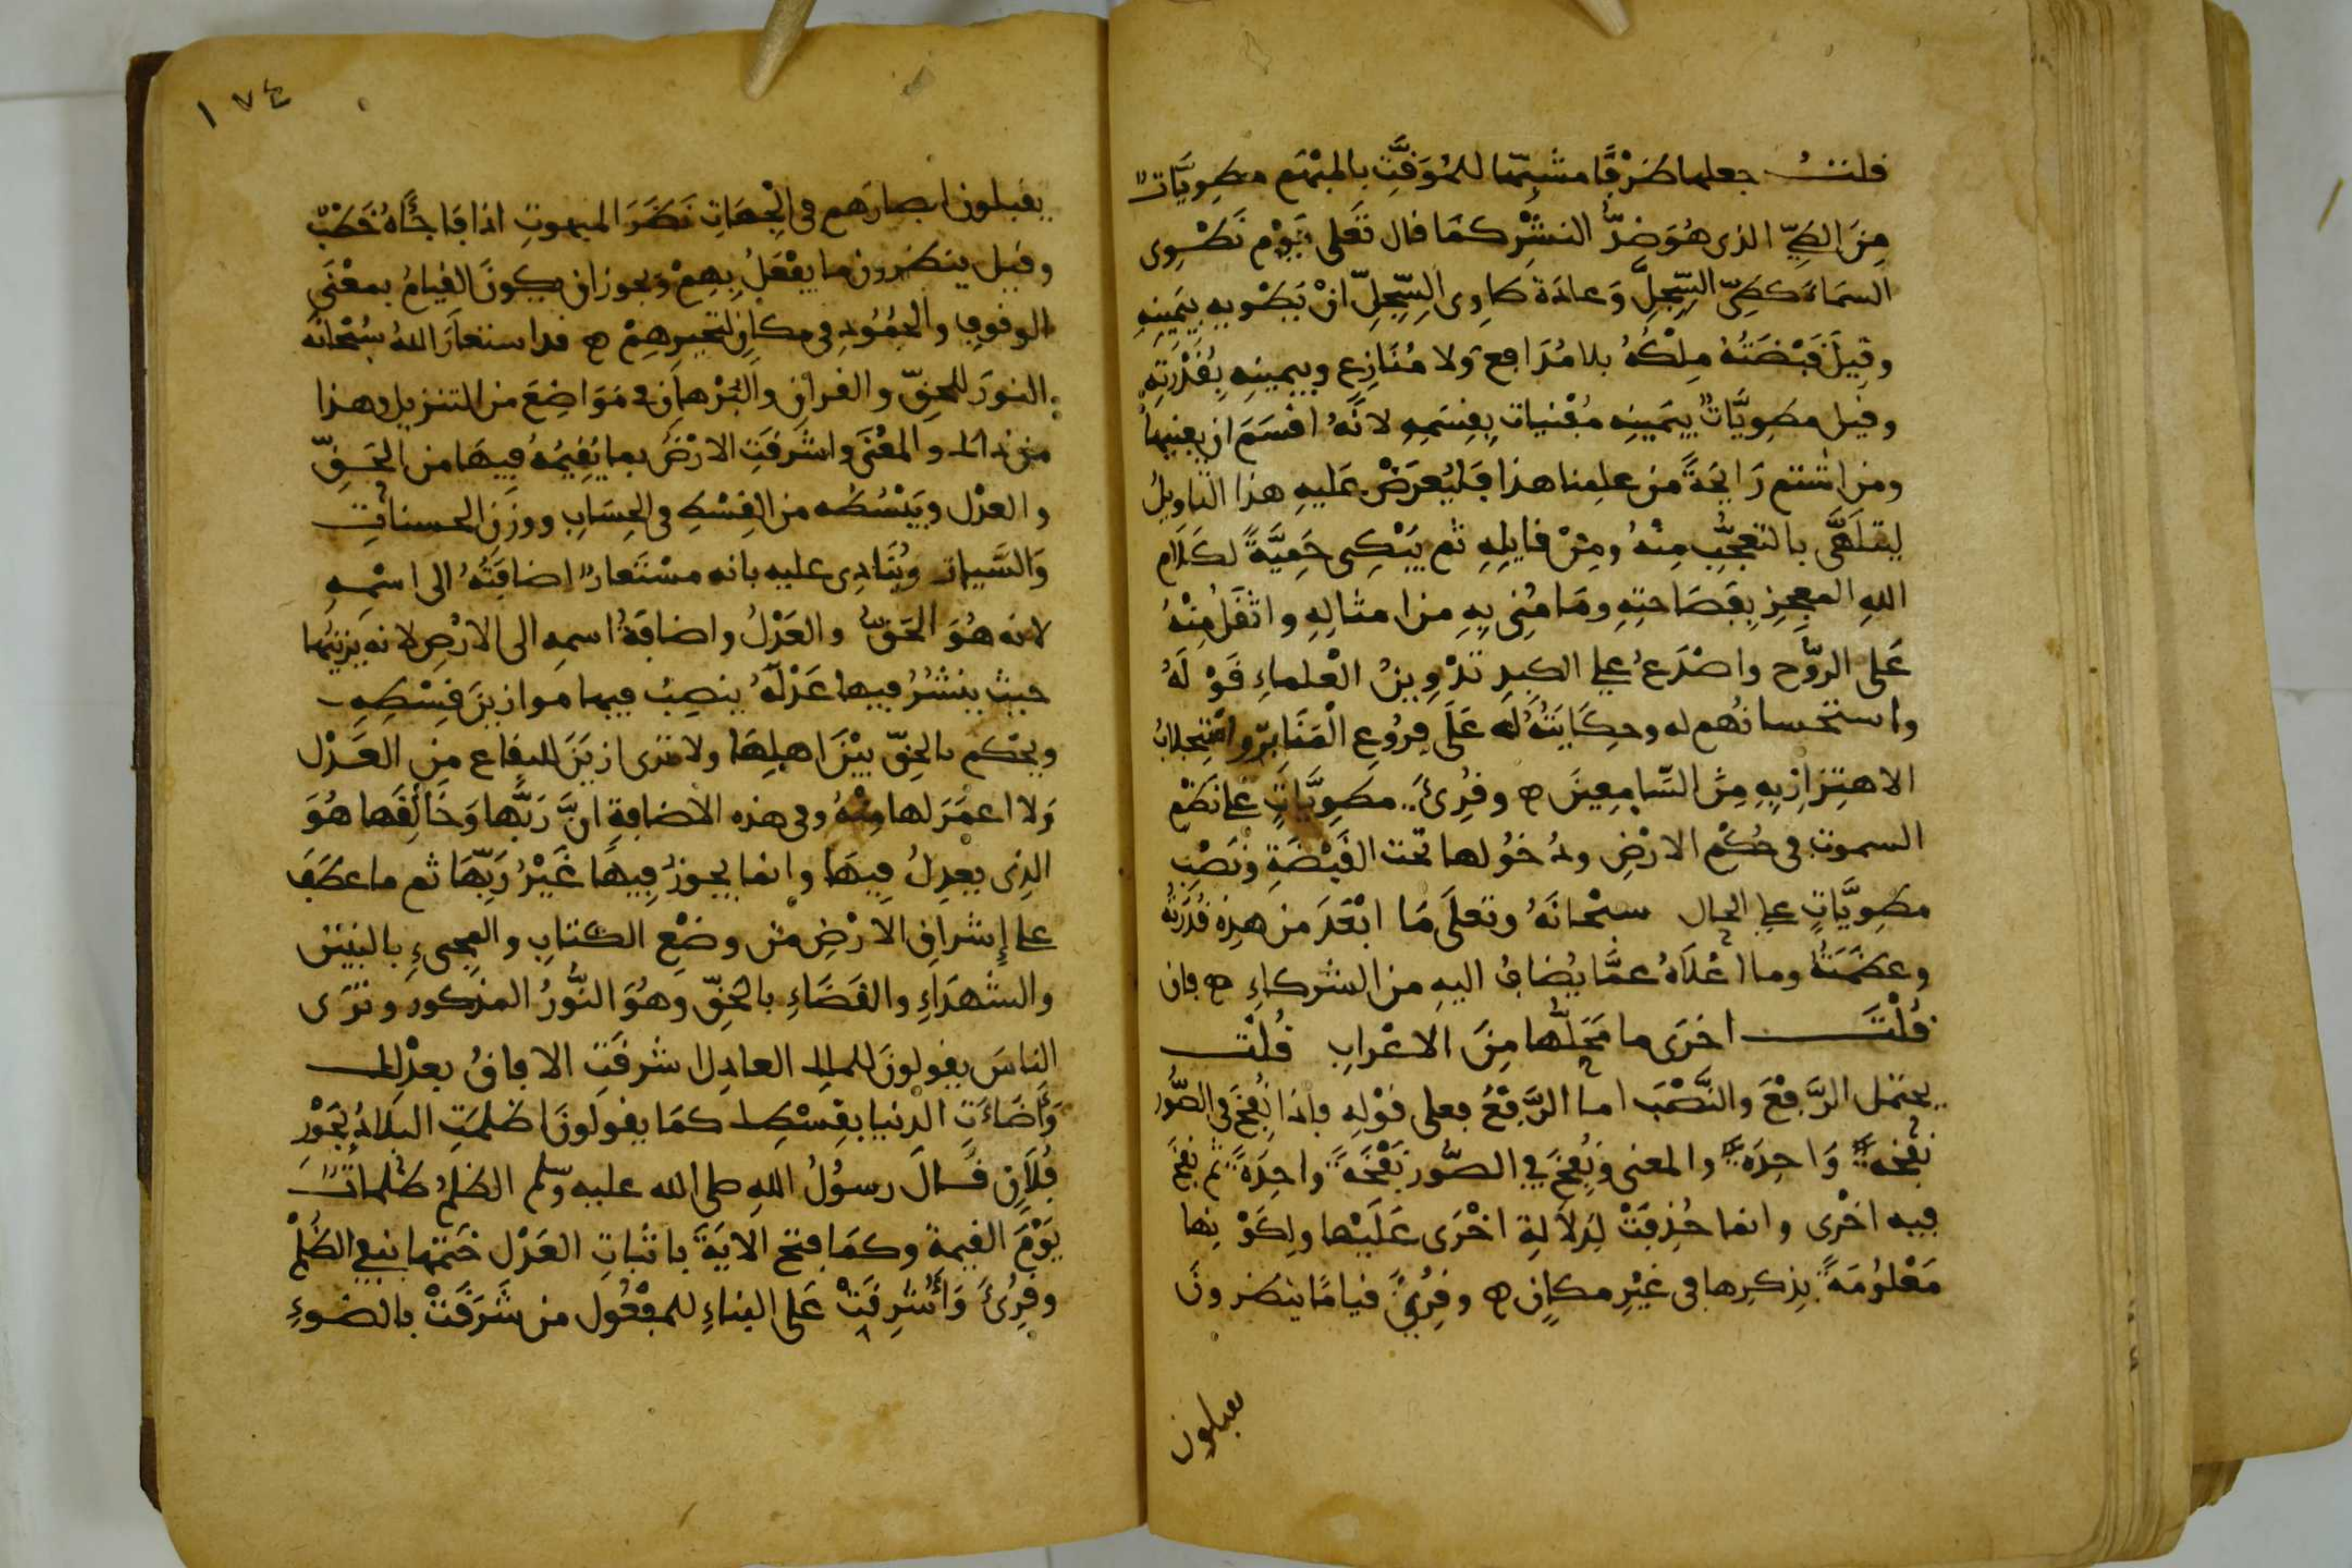 قلت جعلها ظرفا مشبها للمؤقت بالمبهم مطويات
من الطي الذي هو ضد النشر كما قال تعلى يوم نطوى
السماء كطي السجل وعادة طاوى السجل ان يطويه بيمينه
وقيل قبضته ملكه بلا مدافع ولا منازع وبيمينه بقدرته
وقيل مطويات بيمينه مفنيات بقسمه لانه اقسم ان يفنيها
ومن اشتم رايحة من علمنا هذا فليعرض عليه هذا التاويل
ليتلهى بالتعجب منه ومن قايله ثم يبكى حمية لكلام
الله المعجز بفصاحته وما منى به من امثاله واثقل منه
على الروح واصدع على الكبد تدوين العلماء قوله
واستحسانهم له وحكايته له على فروع المنابر واستجلاب
الاهتزاز به من السامعين ه وقرئ مطويات على نظم
السموت في حكم الارض ودخولها تحت القبضة ونصب
مطويات على الحال سبحانه وتعلى ما ابعد من هذه قدرته
وعظمته وما اعلاه عما يضاف اليه من الشركاء ه فان
قلت اخرى ما محلها من الاعراب قلت
يحتمل الرفع والنصب اما الرفع فعلى قوله فاذا نفخ في الصور
نفخة واحدة والمعنى ونفخ في الصور نفخة واحدة ثم نفخ
فيه اخرى وانما حذفت لدلالة اخرى عليها ولكونها
معلومة بذكرها في غير مكان ه وقرئ قياما ينظرون
يقبلون
١٧٤
يقبلون ابصارهم في الجهات نظر المبهوت اذا فاجأه خطب
وقيل ينظرون ما يفعل بهم ويجوز ان يكون القيام بمعنى
الوقوف والجمود في مكان لتحيرهم ه قد استعار الله سبحانه
النور للحق والقران والبرهان في مواضع من التنزيل وهذا
من ذاك والمعنى واشرقت الارض بما يقيمه فيها من الحق
والعدل ويبسطه من القسط في الحساب ووزن الحسنات
والسيات وينادى عليه بانه مستعار اضافته الى اسمه
لانه هو الحق والعدل واضافة اسمه الى الارض لانه يزينها
حيث ينشر فيها عدله ينصب فيها موازين قسطه
ويحكم بالحق بين اهلها ولا ترى ازين للبقاع من العدل
ولا اعمر لها منه وفي هذه الاضافة ان ربها وخالقها هو
الذى يعدل فيها وانما يجوز فيها غير ربها ثم ما عطف
على إشراق الارض من وضع الكتاب والمجىء بالنبيئن
والشهداء والقضاء بالحق وهو النور المذكور وترى
الناس يقولون للملك العادل اشرقت الافاق بعدلك
وأضاءت الدنيا بقسطك كما يقولون اظلمت البلاد بجور
فلان قال رسول الله صلى الله عليه وسلم الظلم ظلمات
يوم القيمة وكما فتح الاية باثبات العدل ختمها بنفي الظلم
وقرئ وأشرقت على البناء للمفعول من شرقت بالضوء